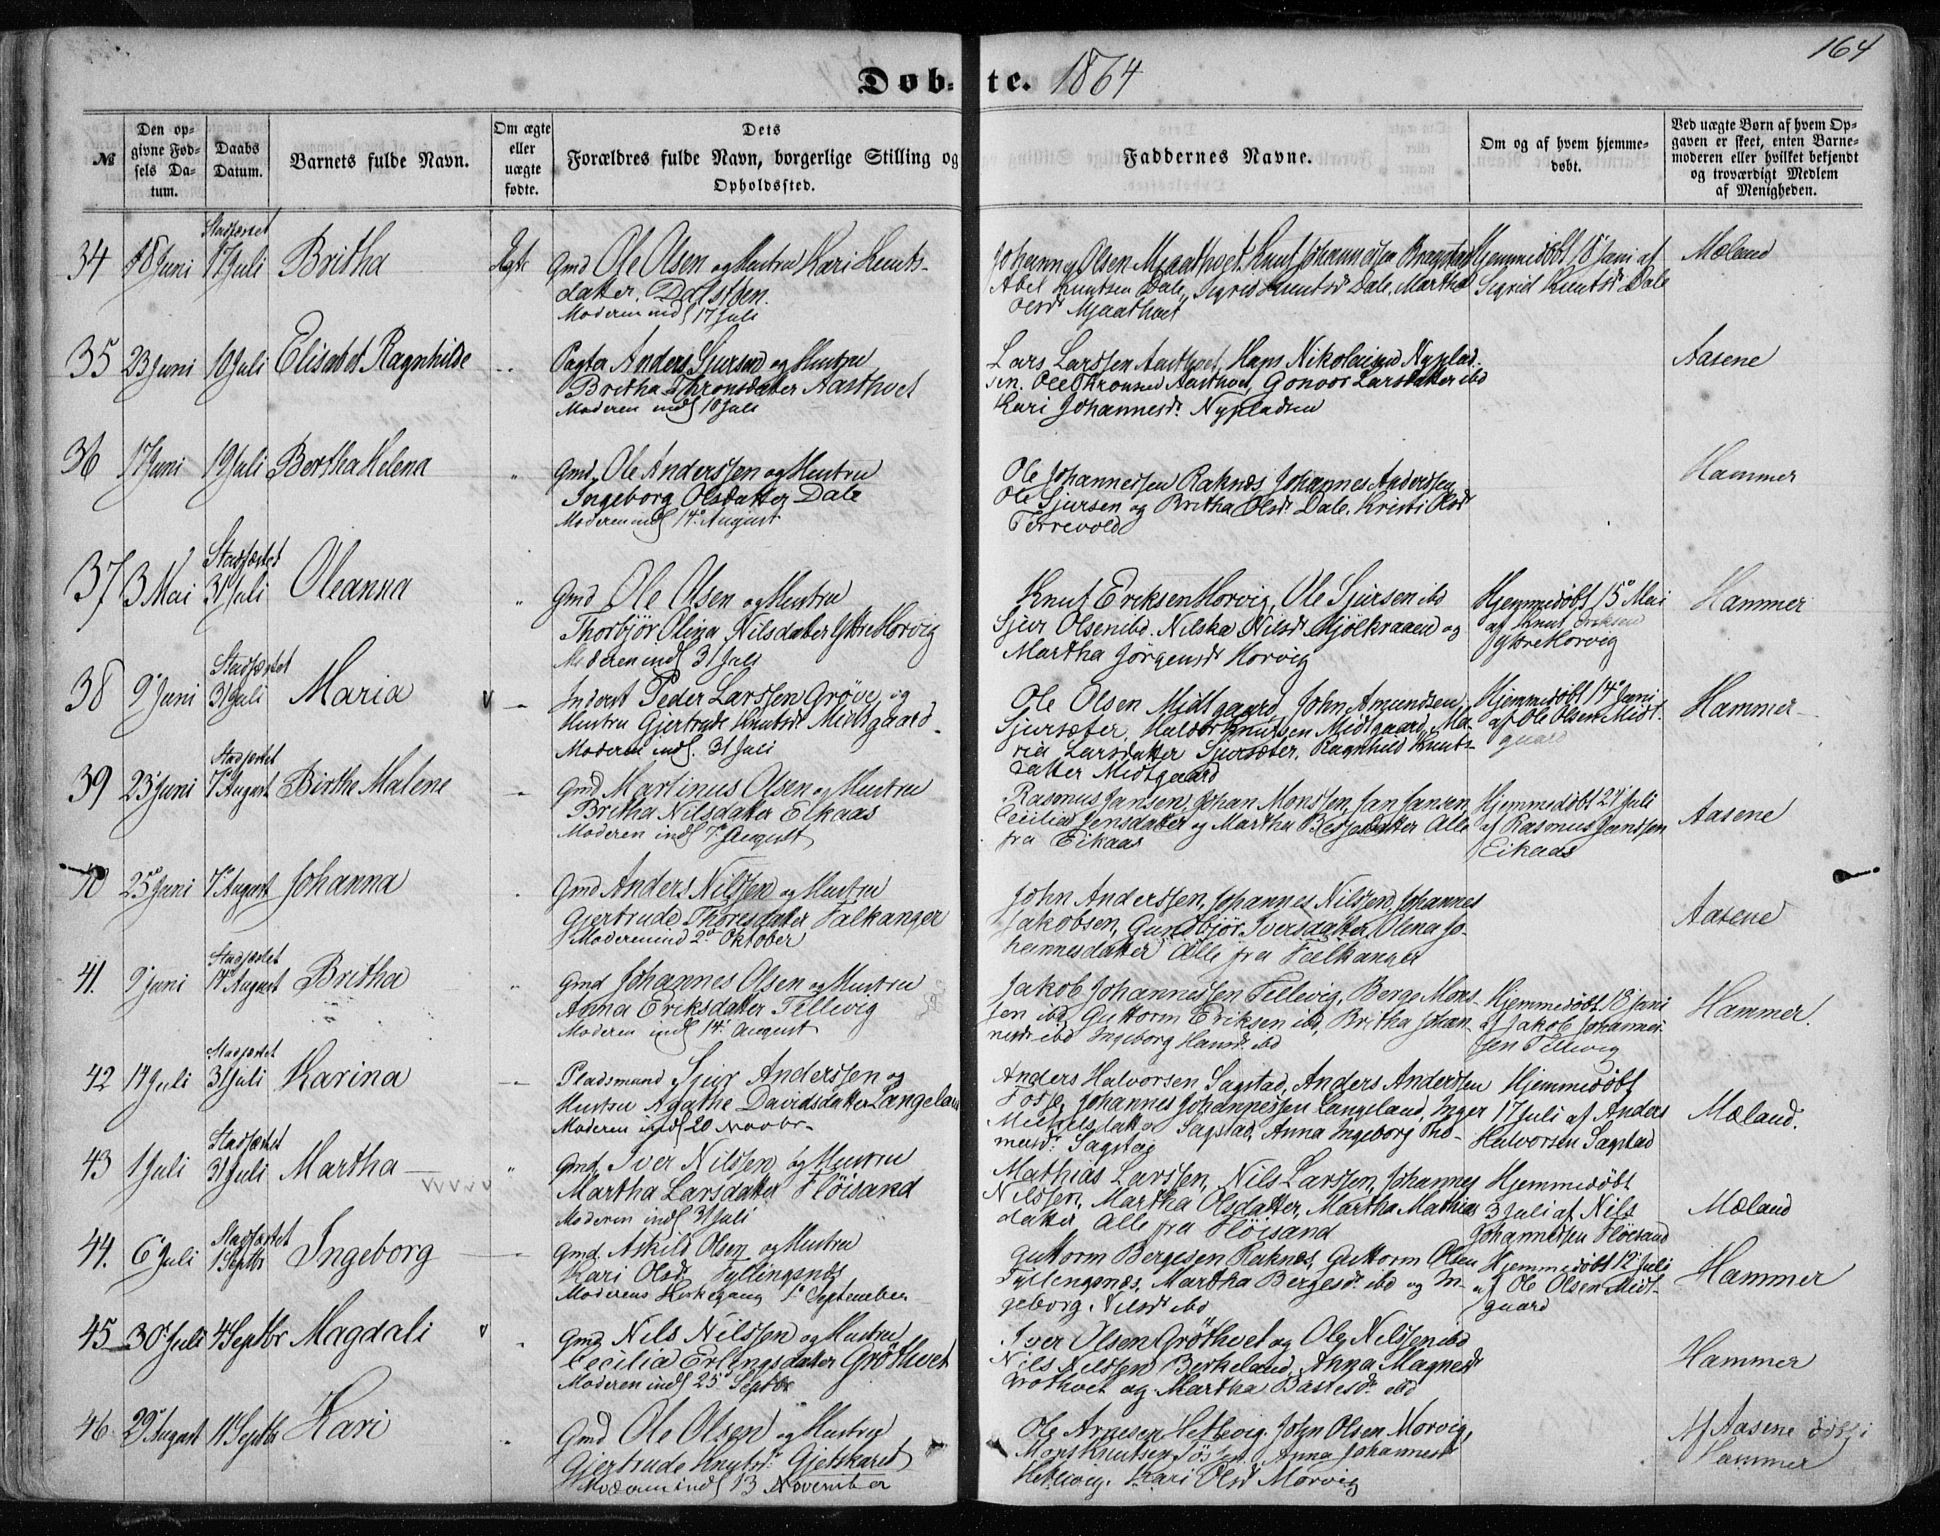 164
Døb-te. 1864
№
Den op-
givne Fød-
sels Da-
tum.
Daabs
Datum.
Barnets fulde Navn.
Om ægte
eller
uægte
fødte.
Dets
Forældres fulde Navn, borgerlige Stilling og
Opholdssted.
Faddernes Navne.
Om og af hvem hjemme-
døbt.
Ved uægte Børn af hvem Op-
gaven er skeet, enten Barne-
moderen eller hvilket bekjendt
og troværdigt Medlem
af Menigheden.
Stadfæstet
34 18 Juni 17 Juli Britha Ægte Gmd Ole Olsen og Hustru Kari Knuts-
datter
Moderen indl 17 Juli
Olsen Mjaathvet. Knut Johannessen
Abel Knutsen Dale, Sigrid Knutsdr Dale, Martha
Olsdr Mjaathvet
Hjemmedøbt 18 Juni af
Sigrid Knutsdr Dale
Mæland
35 23 Juni 10 Juli Elisabet Ragnhilde Anders Sjursen og Hustru
Britha Thronsdatter Aasthvet
Moderen indl 10 Juli
Lars Larssen Aasthvet, Hans Nikolaisen Nyplad-
sen. Ole Thronsen Aasthvet, Gonvor Larsdatter ibd
Kari Johannesdr. Nypladsen
Aasene
36 17 Juni 19 Juli Bertha Helena " Gmd. Ole Anderssen og Hustru
Ingeborg Olsdatter Dale
Moderen indl 14 August
Ole Johannessen Raknes, Johannes Anderssen,
Ole Sjursen og Britha Olsdr Dale. Kristi Olsdr
Hammer
Stadfæstet
37 3 Mai 31 Juli Oleanna " Gmd Ole Olsen og Hustru
Thorbjør Olina Nilsdatter Ytre Horvig
Moderen indl 31 Juli
Knut Eriksen Horvig, Ole Sjursen ibd
Sjur Olsen ibd. Nilska Nilsdr Mjølkraaen og
Martha Jørgensdr Horvig
Hjemmedøbt 15 Mai
af Knut Eriksen
Ytre Horvig
Hammer
Stadfæstet
38 9 Juni 31 Juli Maria v — Inderst Peder Larssen Grøve og
Hustru Gjertrude Knutsdr Midtgaard.
Moderen indl. 31 Juli
Ole Olsen Midtgaard, John Amundsen
Sjursæter, Haldor Knutsen Midtgaard, Ma-
ria Larsdatter Sjursæter. Ragnhild Knuts-
datter Midtgaard
Hjemmedøbt 14 Juni
af Ole Olsen Midt-
gaard
Hammer
Stadfæstet
39 23 Juni 7 August Birthe Malene — Gmd Martinus Olsen og Hustru
Britha Nilsdatter Eikaas
Moderen indl 7 August
Rasmus Jansen, Johan Monssen, Jan Jansen
Cecilia Jensdatter og Martha datter Alle
fra Eikaas
Hjemmedøbt 24 Juli
af Rasmus Jansen
Eikaas
Aasene
40 25 Juni 7 August Johanna Gmd Anders Nilssen og Hustru
Gjertrude Thoresdatter Falkanger
Moderen ind 2 Oktober
John Anderssen, Johannes Nilssen, Johannes
Jakobsen, Gundbjør Iversdatter, Olena Jo-
hannesdatter Alle fra Falkanger
Aasene
Stadfæstet
41. 9 Juni 14 August Britha " Gmd Johannes Olsen og Hustru
Anna Eriksdatter Tellevig
Moderen indl 14 August
Jakob Johannessen Tellevig, Berge Mons-
sen ibd, Guttorm Eriksen ibd, Britha Johan-
nesdr ibd Ingeborg Hansdr ibd
Hjemmedøbt 18 Juni
af Jakob Johannes-
sen Tellevig
Hammer.
Stadfæstet
42 14 Juli 31 Juli Karina — Pladsmand Sjur Anderssen og
Hustru Agathe Davidsdatter Langeland
Moderen indl 20 Novbr.
Anders Halvorsen Sagstad, Anders Anderssen
Johannes Johannessen Langeland, Inger
Mickelsdatter Sagstad, Anna Ingeborg Tho-
masdr Sagstad
Hjemmedøbt
17 Juli af Anders
Halvorsen Sagstad
Mæland.
Stadfæstet
43 1 Juli 31 Juli Martha " Gmd Iver Nilssen og Hustru
Martha Larsdatter Fløisand
Moderen indl 31 Juli
Mathias Larssen, Nils Larssen, Johannes
Nilssen, Martha Olsdatter, Martha Mathias
datter Alle fra Fløisand
Hjemmedøbt
3 Juli af Nils
Johannessen Fløisand
Mæland
Stadfæstet
44. 6 Juli 1 Septbr Ingeborg — Gmd. Askild Olsen og Hustru
Kari Olsdr Fyllingsnes
Moderens Kirkegang 1 September
Guttorm Bergesen Raknes, Guttorm Olsen
Fyllingsnes, Martha Bergesdr ibd og In-
geborg Nilsdr ibd
Hjemmedøbt 12 Juli
af Ole Olsen Midt-
gaard
Hammer
45 30 Juli 4 Septbr Magdali v Gmd Nils Nilssen og Hustru
Cecilia Erlingsdatter Grøthvet
Moderen indl 25 Septbr
Iver Olsen Grøthvet og Ole Nilssen ibd
Nils Nilssen Berkeland, Anna Magnesdr
Grøthvet og Martha Bastesdr ibd
Hammer
46 29 August 11 Septbr Kari Gmd Ole Olsen og Hustru
Gjertrude Knutsdr Gjetskaret
Moderen indl 13 November
Ole Arnesen Hetlevig, John Olsen Morvig,
Mons Knutsen Anna Johannesdr
Hetlevig. Kari Olsdr Morvig
Af Aasene døbt i
Hammer